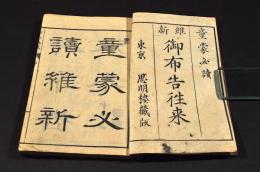 童蒙必讀
維新
御布告往来
東京 思明楼藏版
童蒙必
讀維新